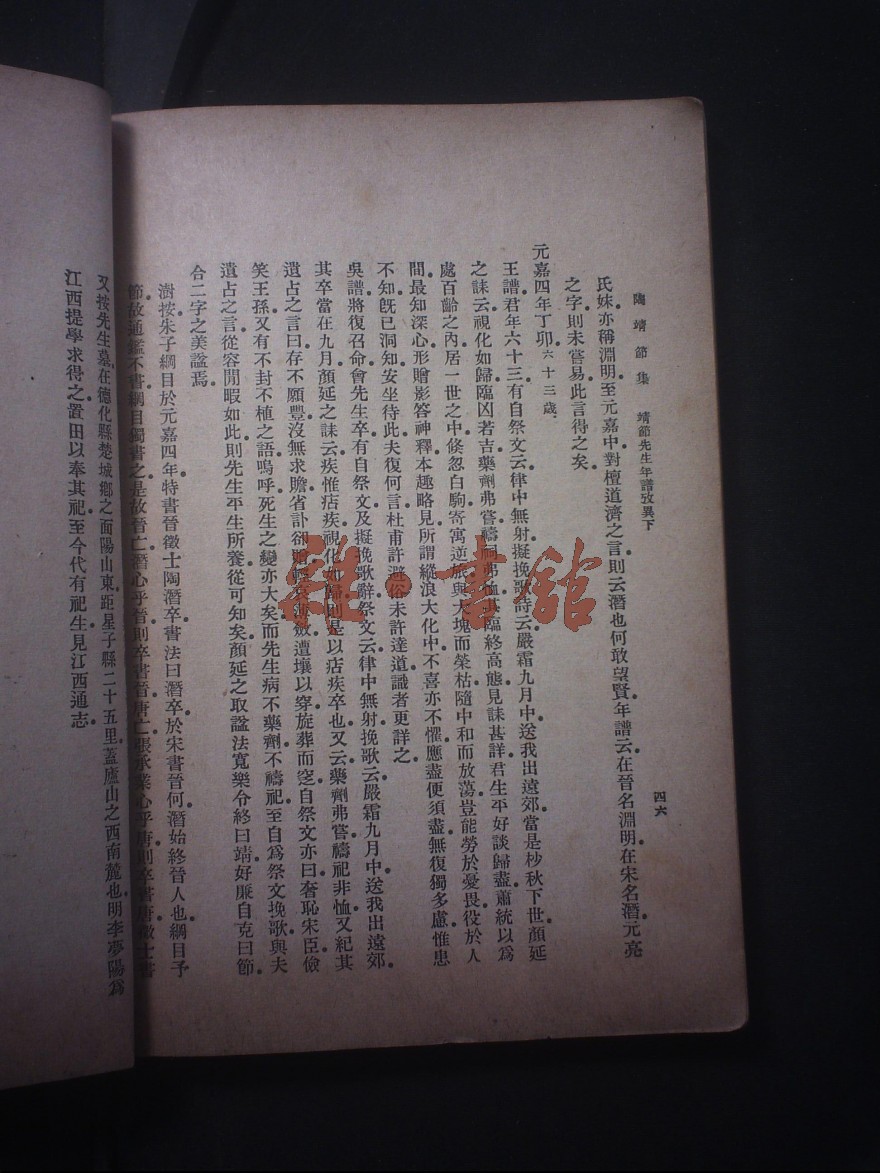 陶靖節集　靖節先生年譜攷異下
四六
氏妹亦稱淵明至元嘉中對檀道濟之言則云潛也何敢望賢年譜云在晉名淵明在宋名潛元亮
之字則未嘗易此言得之矣
元嘉四年丁卯六十三歲
王譜君年六十三有自祭文云律中無射擬挽歌詩云嚴霜九月中送我出遠郊當是杪秋下世顏延
之誄云視化如歸臨凶若吉藥劑弗嘗禱祠弗恤其臨終高態見誄甚詳君生平好談歸盡蕭統以爲
處百齡之內居一世之中倏忽白駒寄寓逆旅與大塊而榮枯隨中和而放蕩豈能勞於憂畏役於人
間最知深心形贈影答神釋本趣略見所謂縱浪大化中不喜亦不懼應盡便須盡無復獨多慮惟患
不知旣已洞知安坐待此夫復何言杜甫許避俗未許達道識者更詳之
吳譜將復召命會先生卒有自祭文及擬挽歌辭祭文云律中無射挽歌云嚴霜九月中送我出遠郊
其卒當在九月顏延之誄云疾惟痁疾視化如歸則是以痁疾卒也又云藥劑弗嘗禱祀非恤又紀其
遺占之言曰存不願豐沒無求贍省訃卻賻輕哀薄斂遭壤以穿旋葬而窆自祭文亦曰奢恥宋臣儉
笑王孫又有不封不植之語嗚呼死生之變亦大矣而先生病不藥劑不禱祀至自爲祭文挽歌與夫
遺占之言從容閒暇如此則先生平生所養從可知矣顏延之取諡法寬樂令終曰靖好廉自克曰節
合二字之美諡焉
澍按朱子綱目於元嘉四年特書晉徵士陶潛卒書法曰潛卒於宋書晉何潛始終晉人也綱目予
節故通鑑不書綱目獨書之是故晉亡潛心乎晉則卒書晉唐亡張承業心乎唐則卒書唐徵士書
又按先生墓在德化縣楚城鄉之面陽山東距星子縣二十五里蓋廬山之西南麓也明李夢陽爲
江西提學求得之置田以奉其祀至今代有祀生見江西通志
雜·書館